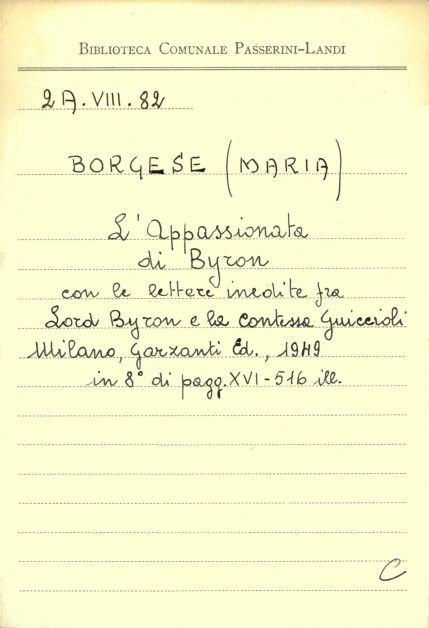 BIBLIOTECA COMUNALE PASSERINI-LANDI
2A.VIII.82
BORGESE (MARIA)
L'Appassionata
di Byron
con le lettere inedite fra
Lord Byron e la contessa Guiccioli
Milano, Garzanti Ed., 1949
in 8° di pagg. XVI-516 ill.
C